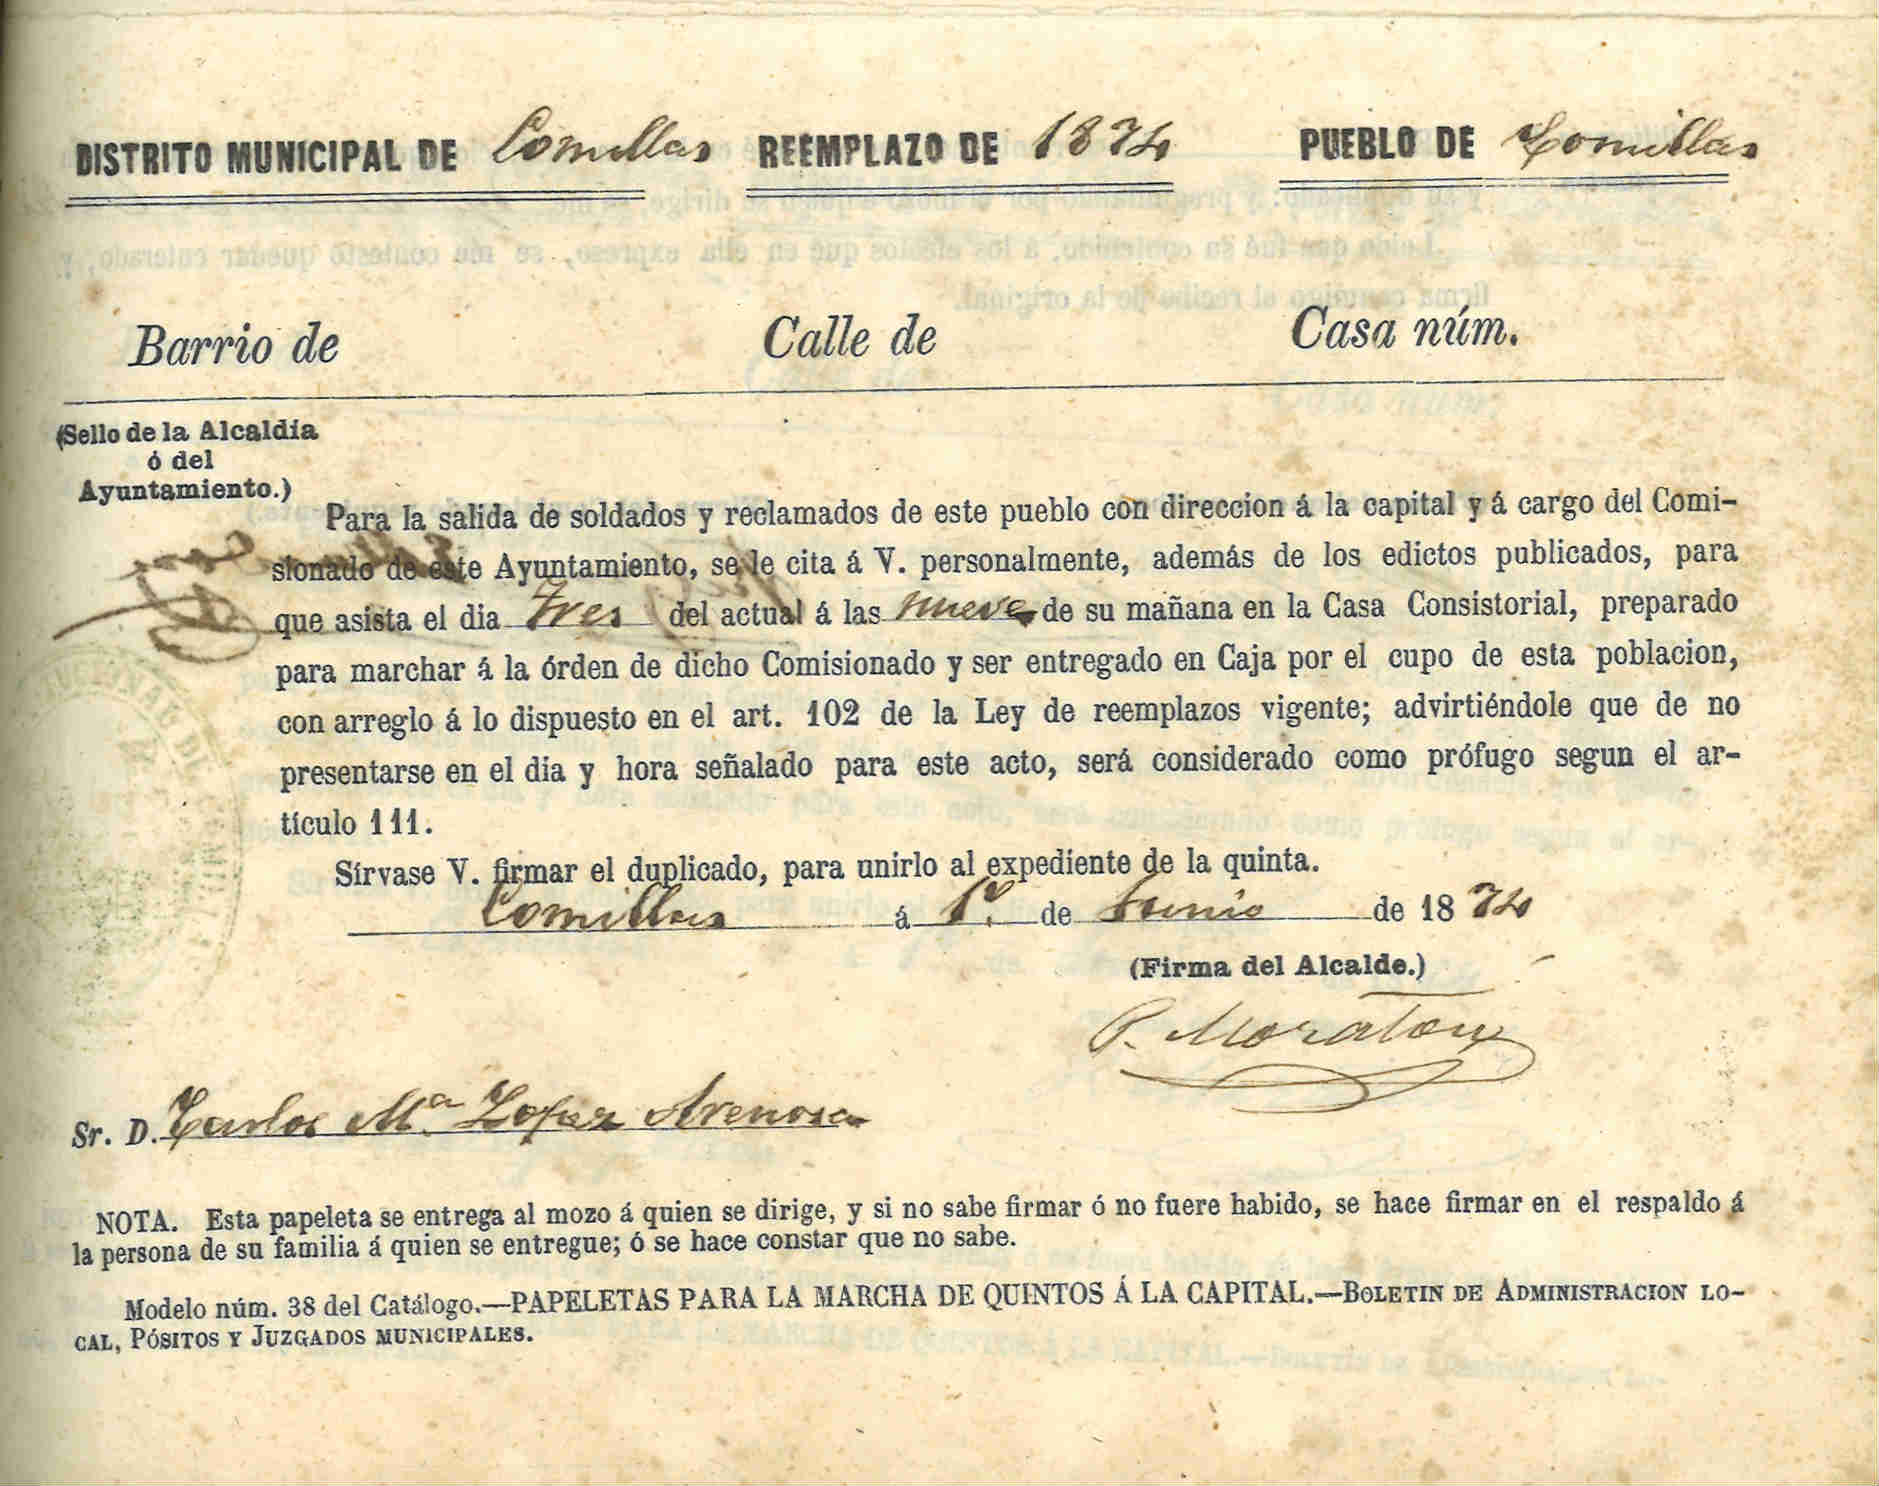 DISTRITO MUNICIPAL DE Comillas REEMPLAZO DE 1874 PUEBLO DE Comillas
Barrio de Calle de Casa núm.
(Sello de la Alcaldía
ó del
Ayuntamiento.)
Para la salida de soldados y reclamados de este pueblo con direccion á la capital y á cargo del Comi-
sionado de este Ayuntamiento, se le cita á V. personalmente, además de los edictos publicados, para
que asista el dia tres del actual á las nueve de su mañana en la Casa Consistorial, preparado
para marchar á la órden de dicho Comisionado y ser entregado en Caja por el cupo de esta poblacion,
con arreglo á lo dispuesto en el art. 102 de la Ley de reemplazos vigente; advirtiéndole que de no
presentarse en el dia y hora señalado para este acto, será considerado como prófugo segun el ar-
tículo 111.
Sírvase V. firmar el duplicado, para unirlo al expediente de la quinta.
Comillas á 1º. de Junio de 1874
(Firma del Alcalde.)
P. Moraton
Sr. D. Carlos Mª Lopez Arenosa
NOTA. Esta papeleta se entrega al mozo á quien se dirige, y si no sabe firmar ó no fuere habido, se hace firmar en el respaldo á
la persona de su familia á quien se entregue; ó se hace constar que no sabe.
Modelo núm. 38 del Catálogo.—PAPELETAS PARA LA MARCHA DE QUINTOS Á LA CAPITAL.—BOLETIN DE ADMINISTRACION LO-
CAL, PÓSITOS Y JUZGADOS MUNICIPALES.